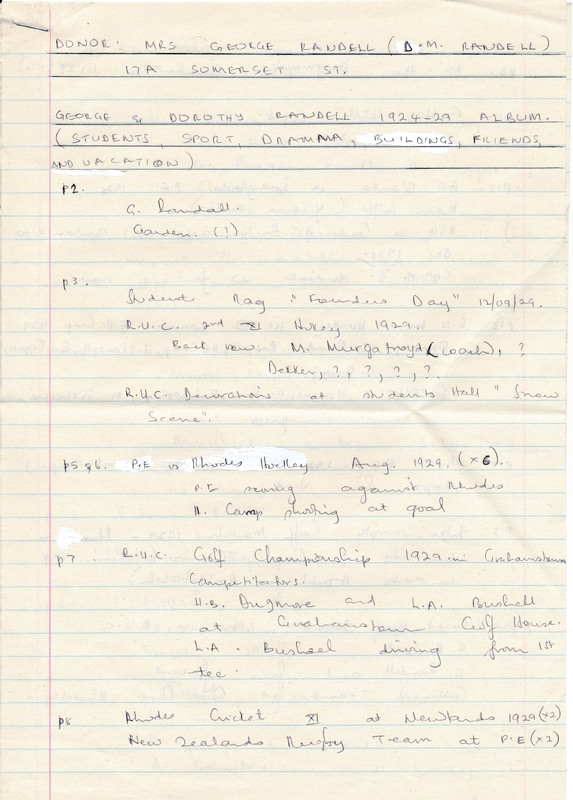 DONOR: MRS GEORGE RANDELL (D.M. RANDELL)
17A SOMERSET ST.
GEORGE & DOROTHY RANDELL 1924-29 ALBUM.
(STUDENTS, SPORT, DRAMMA, BUILDINGS, FRIENDS,
AND VACATION)
p2.
G. Randall.
Garden. (?)
p3.
Student Rag "Founders Day" 12/09/29.
R.U.C. 2nd XI Hockey 1929.
Back row: M. Murgatroyd (coach), ?
Dekker, ?, ?, ?, ?.
R.U.C. Decorations at students Hall "Snow
Scene".
p5 & 6. P.E vs Rhodes Hockey Aug. 1929. (x6).
P.E scoring against Rhodes
H. Camp shooting at goal
p7. R.U.C. Golf Championship 1929 in Grahamstown
Competitators.
H.B. Dugmore and L.A. Bushell
at Grahamstown Golf House.
L.A. Bushell driving from 1st
tee.
p8 Rhodes Cricket XI at Newlands 1929 (x2)
New Zealands Rugby Team at P.E (x2)